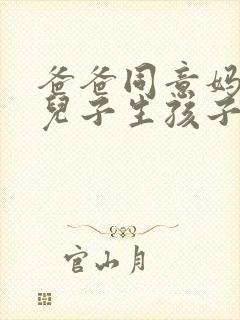 爸爸同意妈
兒子生孩子
官山月